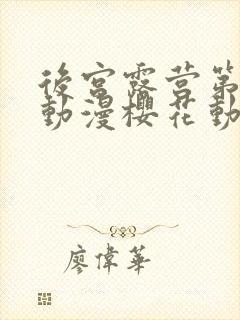 後宮露營第
動漫櫻花動
廖偉華